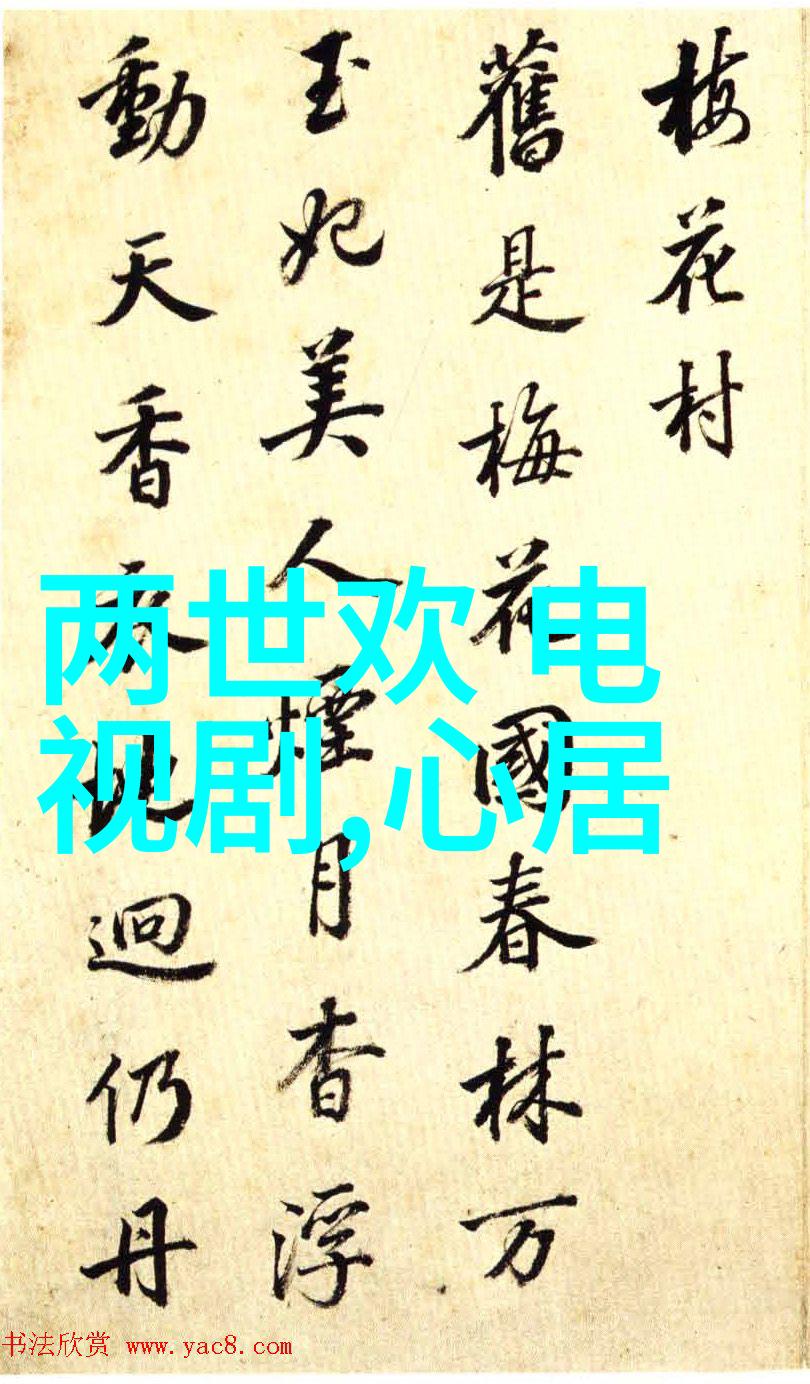 梅花村
舊是梅花國春林万
玉妃美人煙月杳浮
動天香迥仍丹
两世欢 电
视剧,心居
书法欣赏 www.yac8.com